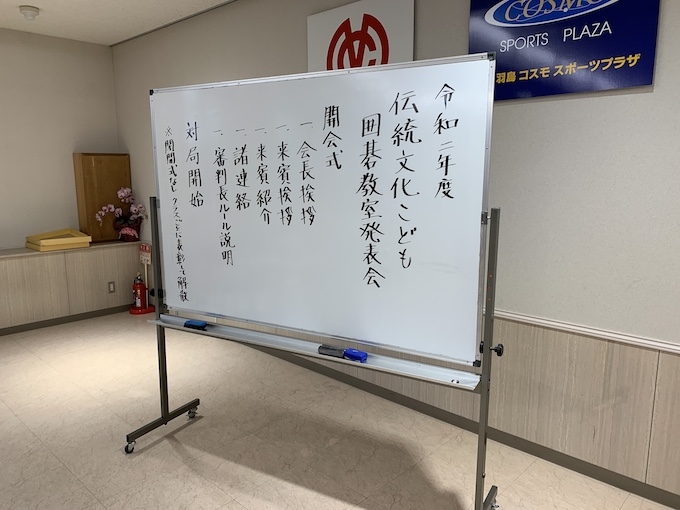 令和二年度
伝統文化こども
囲碁教室発表会
開会式
一 会長挨拶
一. 来賓挨拶
一. 来賓紹介
一 諸連絡
一. 審判長ルール説明
対局開始
※閉開式なし クラスごとに表彰して解散
COSMO
SPORTS PLAZA
羽島 コスモ スポーツプラザ